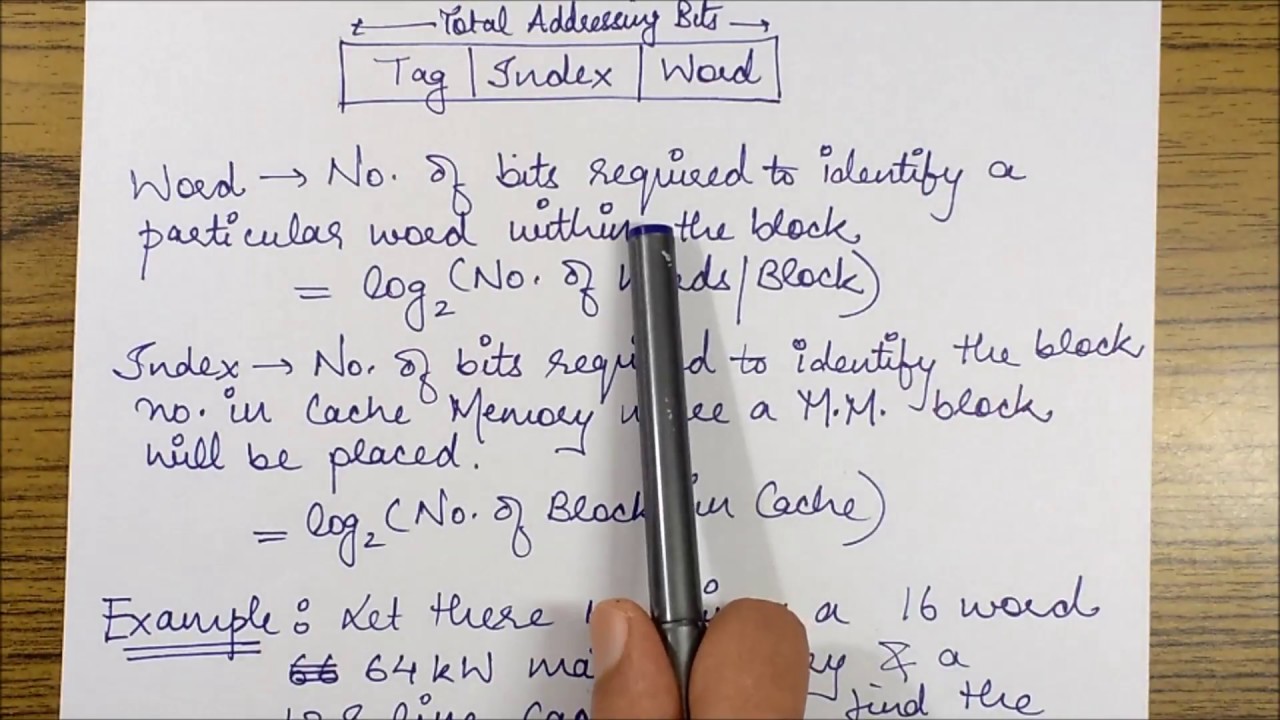 Total Addressing Bits
Tag Index Word
Word → No. of bits required to identify a
particular word within the block
= log₂ (No. of /Block)
Index → No. of bits to identify the block
no. in Cache Memory a M.M. block
will be placed.
= log₂ (No. of in Cache)
Example : Let there a 16 word
64 kW & a
find the